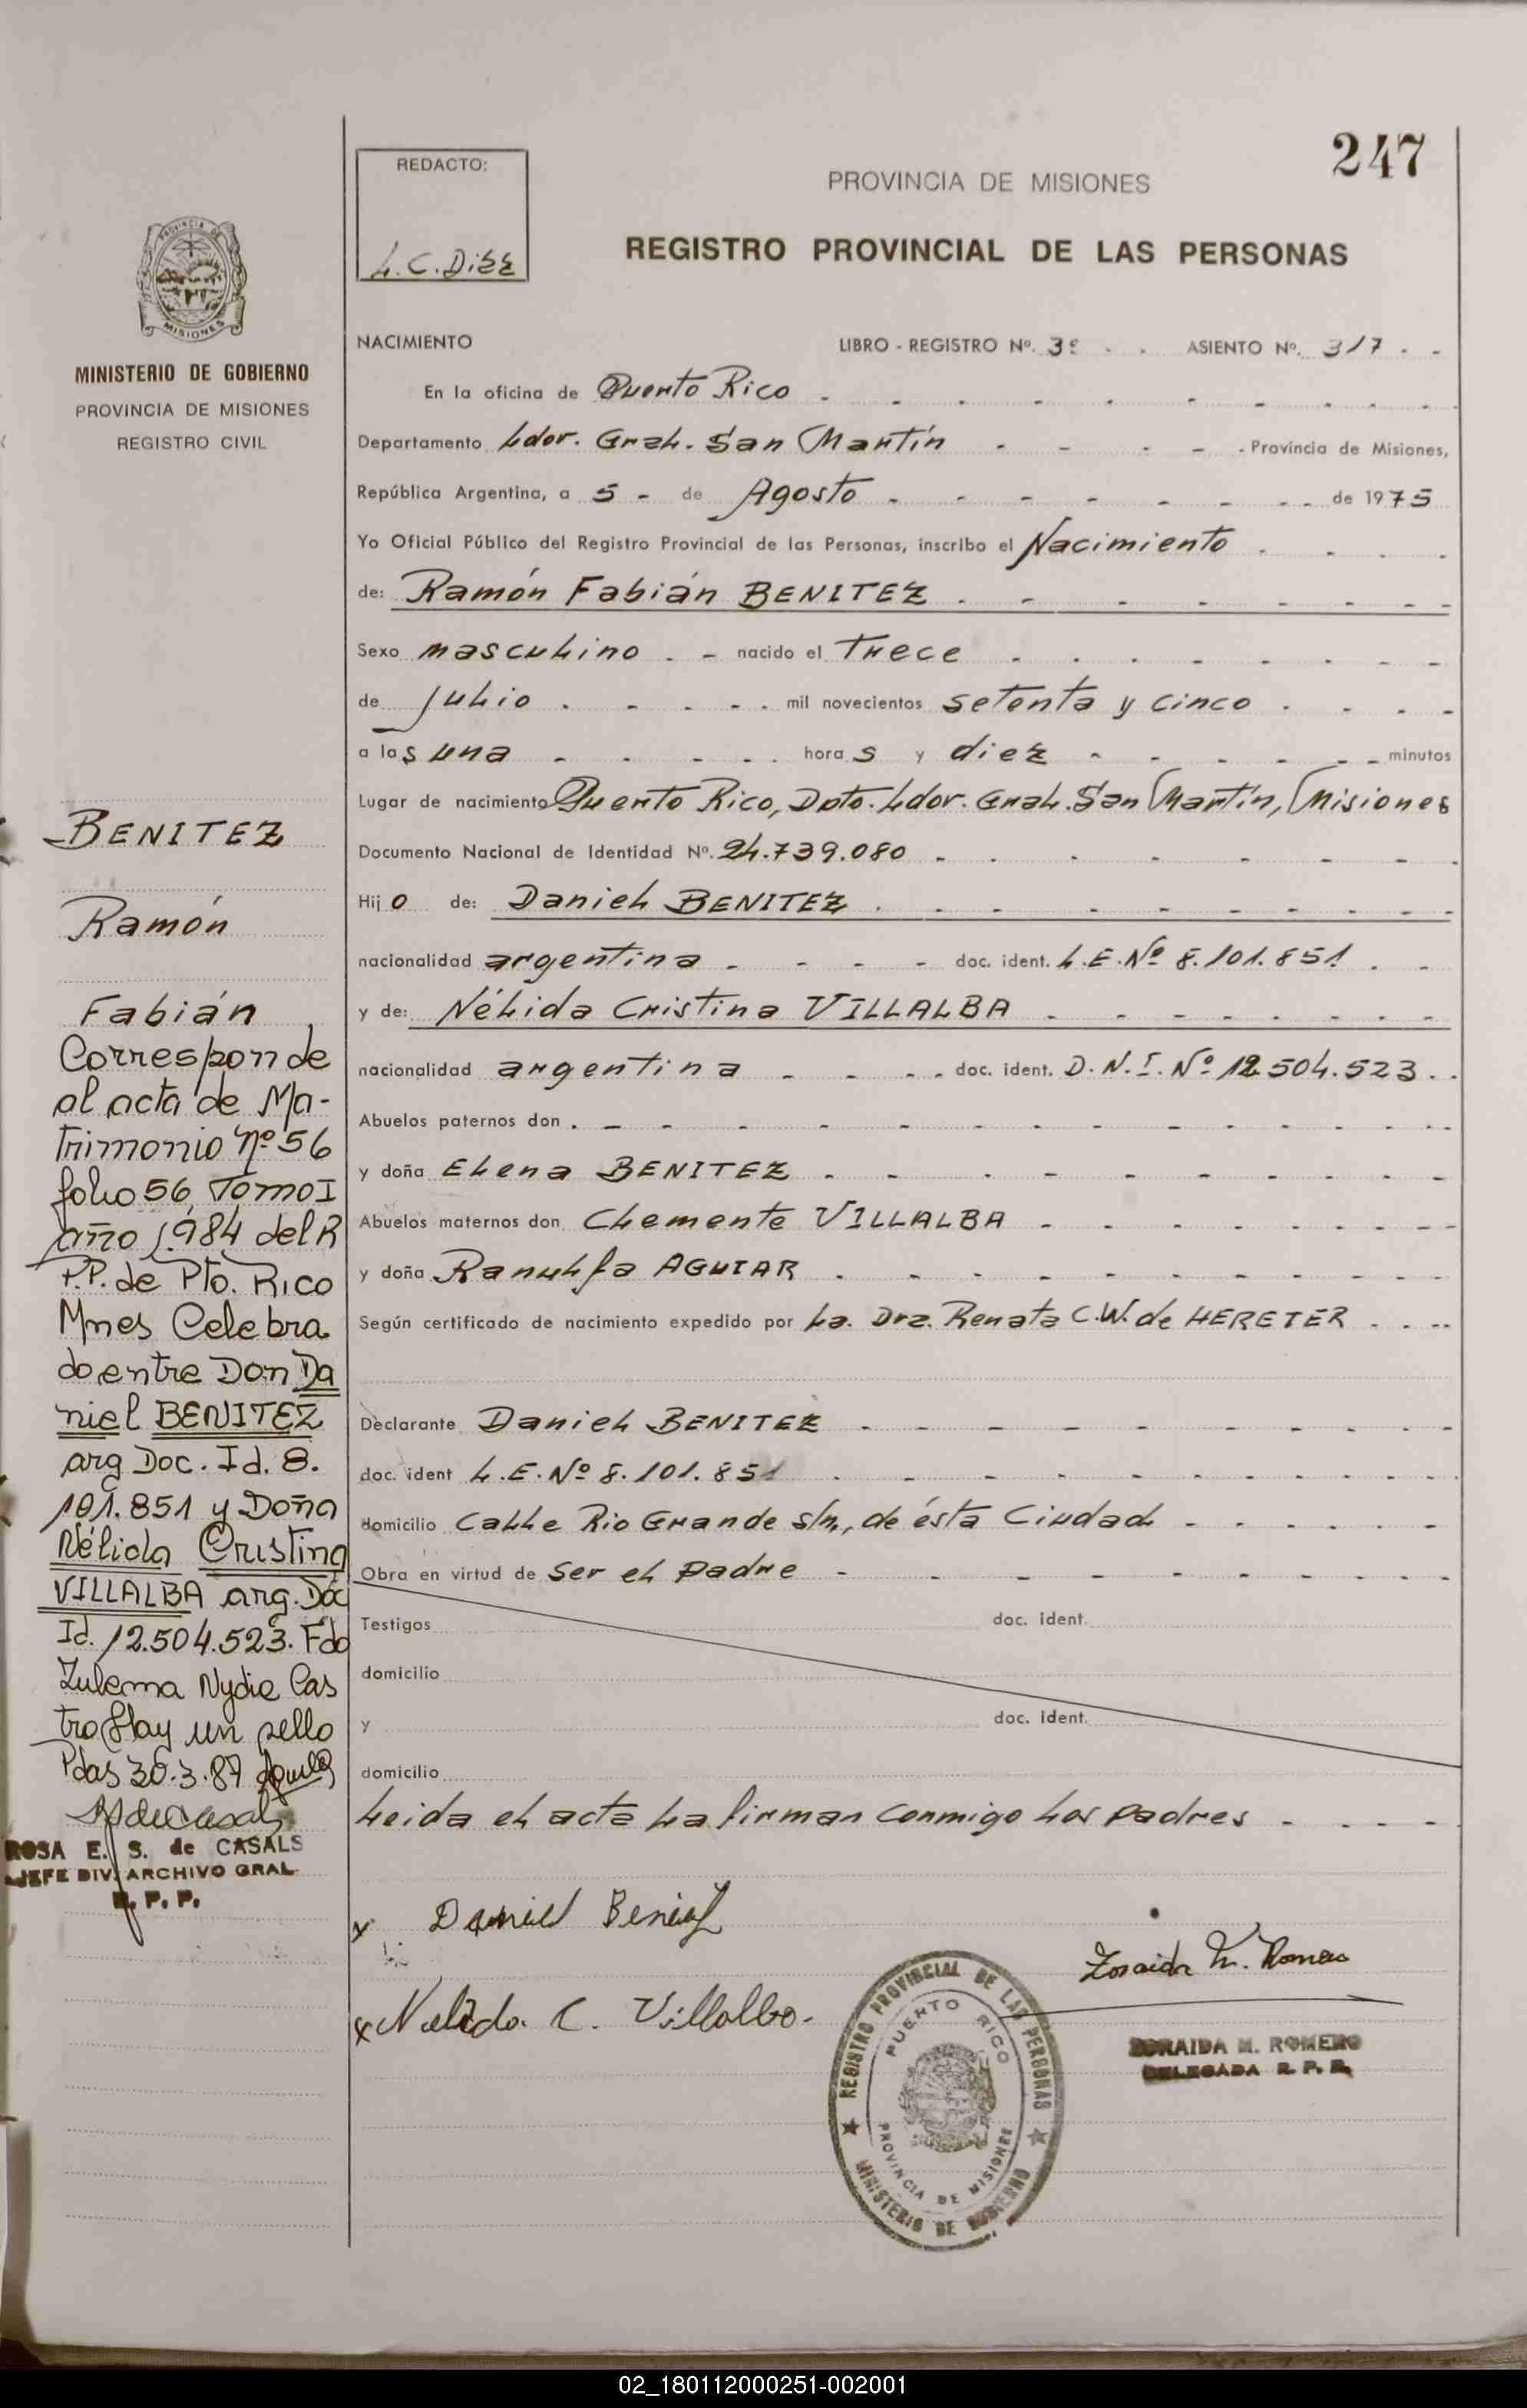 247
REDACTO:
L.C. Diez
PROVINCIA DE MISIONES
REGISTRO PROVINCIAL DE LAS PERSONAS
PROVINCIA DE
MISIONES
MINISTERIO DE GOBIERNO
PROVINCIA DE MISIONES
REGISTRO CIVIL
BENITEZ
Ramón
Fabián
Corresponde
al acta de Ma-
trimonio nº 56
folio 56 Tomo I
año 1984 del R
P.P. de Pto. Rico
Mnes Celebra
do entre Don Da
niel BENITEZ
arg Doc. Id. 8.
101.851 y Doña
Nélida Cristina
VILLALBA arg. Doc
Id. 12.504.523. Fdo
Zulema Nydie Cas
tro Hay un sello
Pdas 30.3.87
ROSA E. S. de CASALS
JEFE DIV. ARCHIVO GRAL
R. P. P.
NACIMIENTO LIBRO - REGISTRO Nº. ASIENTO Nº. 317
En la oficina de Puerto Rico
Departamento Ldor. Gral. San Martín Provincia de Misiones,
República Argentina, a 5 de Agosto de 1975
Yo Oficial Público del Registro Provincial de las Personas, inscribo el Nacimiento
de: Ramón Fabián BENITEZ
Sexo masculino nacido el Trece
de Julio mil novecientos setenta y cinco
a las una horas y diez minutos
Lugar de nacimiento Puerto Rico, Dpto. Ldor. Gral. San Martín, Misiones
Documento Nacional de Identidad Nº. 24.739.080
Hijo de: Daniel BENITEZ
nacionalidad argentina doc. ident. L.E. Nº 8.101.851
y de: Nélida Cristina VILLALBA
nacionalidad argentina doc. ident. D.N.I. Nº 12.504.523
Abuelos paternos don
y doña Elena BENITEZ
Abuelos maternos don Clemente VILLALBA
y doña Ranulfa AGUIAR
Según certificado de nacimiento expedido por la Dra. Renata C.W. de HERETER
Declarante Daniel BENITEZ
doc. ident L.E. Nº 8.101.851
domicilio Calle Rio Grande s/n., de ésta Ciudad
Obra en virtud de ser el padre
Testigos doc. ident.
domicilio
y doc. ident.
domicilio
Leida el acta la firman conmigo los padres
x Daniel Benitez
x Nelida C. Villalba.
Zoraida M. Romero
ZORAIDA M. ROMERO
DELEGADA R. P. P.
REGISTRO PROVINCIAL DE LAS PERSONAS
PUERTO RICO
PROVINCIA DE MISIONES
MINISTERIO DE GOBIERNO
02_180112000251-002001